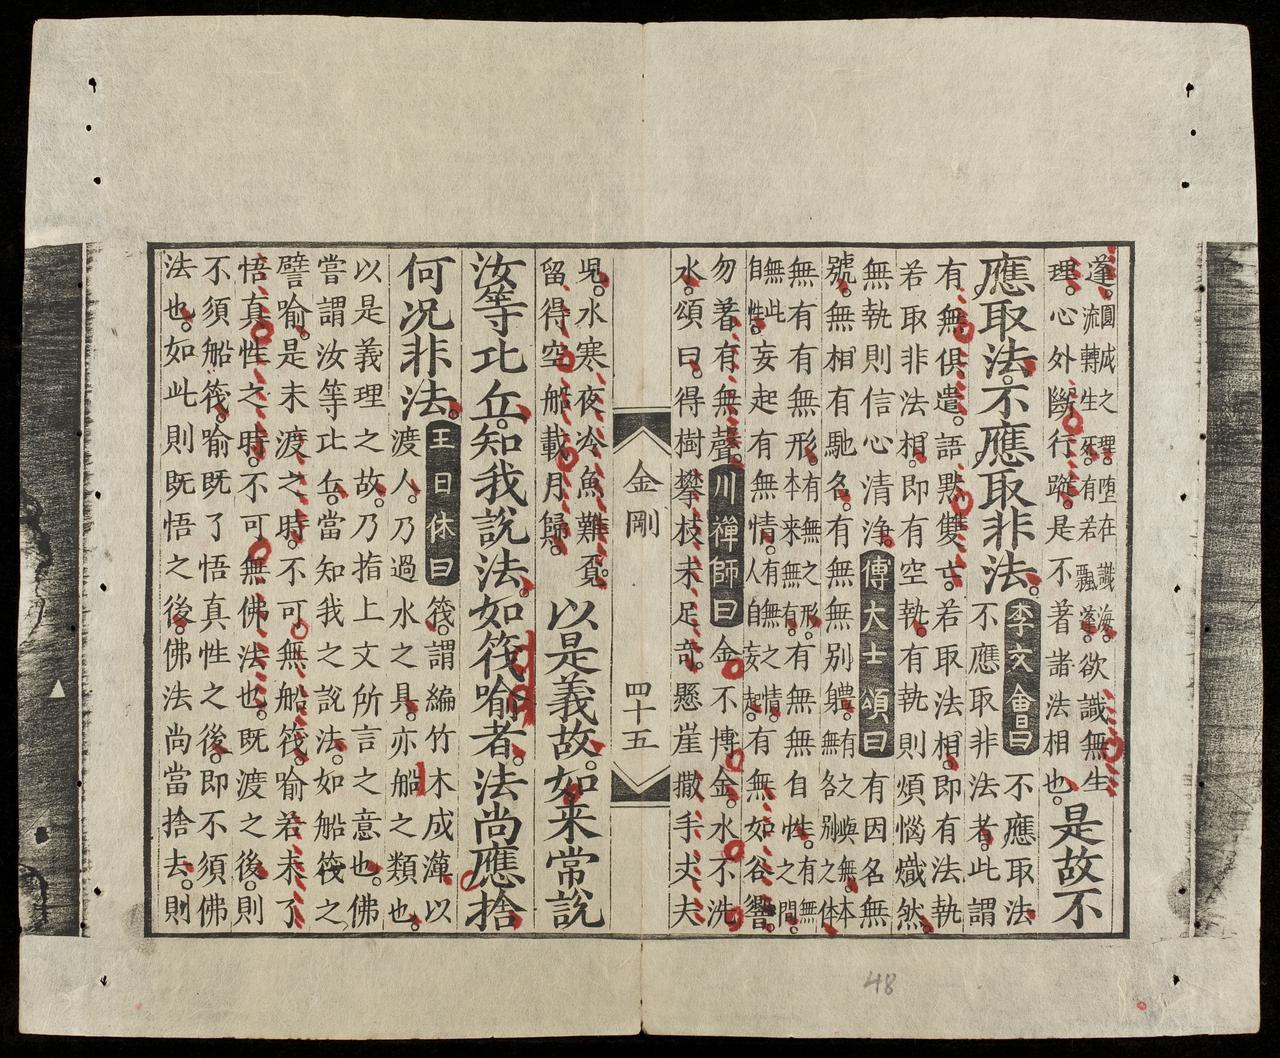 蓬。圓成之理。墮在識海。流轉生死。有若飄蓬。欲識無生
理。心外斷行蹤。是不著諸法相也。是故不
應取法。不應取非法。李文會曰不應取法
不應取非法者。此謂
有無俱遣。語默雙亡。若取法相。即有法執
若取非法相。即有空執。有執則煩惱熾然。
無執則信心清淨。傅大士頌曰有因名無
號。無相有馳名。有無無別軆。有之與無本無各別之体
無有有無形。有無之形。本来無有。有無無自性。有無之間
無此自性。妄起有無情。有無之情。人自妄起。有無如谷響。
勿著有無聲。川禪師曰金不博金。水不洗
水。頌曰。得樹攀枝未足竒。懸崖撒手丈夫
金剛 四十五
児。水寒夜冷魚難覓。
留得空船載月歸。以是義故。如来常說
汝等比丘。知我說法。如筏喻者。法尚應捨
何况非法。王日休曰筏。謂編竹木成以
渡人。乃過水之具。亦船之類也。
以是義理之故。乃指上文所言之意也。佛
嘗謂汝等比丘。當知我之說法。如船筏之
譬喻。是未渡之時。不可無船筏。喻若未了
悟真性之時。不可無佛法也。既渡之後。則
不須船筏。喻既了悟真性之後。即不須佛
法也。如此則既悟之後。佛法尚當捨去。則
48